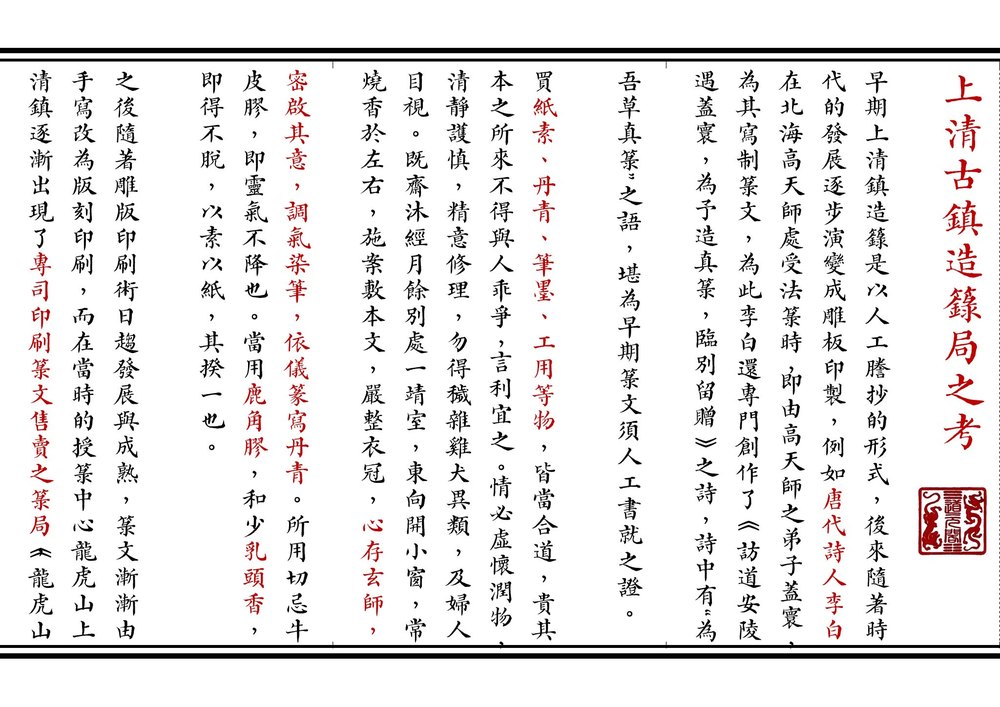 上清古鎮造籙局之考
早期上清鎮造籙是以人工謄抄的形式，後來隨著時
代的發展逐步演變成雕板印製，例如唐代詩人李白
在北海高天師處受法箓時，即由高天師之弟子蓋寰，
為其寫制箓文，為此李白還專門創作了《訪道安陵
遇蓋寰，為予造真箓，臨別留贈》之詩，詩中有“為
吾草真箓”之語，堪為早期箓文須人工書就之證。
買紙素、丹青、筆墨、工用等物，皆當合道，貴其
本之所來不得與人乖爭，言利宜之。情必虛懷潤物，
清靜護慎，精意修理，勿得穢雜雞犬異類，及婦人
目視。既齋沐經月餘別處一靖室，東向開小窗，常
燒香於左右，施案敷本文，嚴整衣冠，心存玄師，
密啟其意，調氣染筆，依儀篆寫丹青。所用切忌牛
皮膠，即靈氣不降也。當用鹿角膠，和少乳頭香，
即得不脫，以素以紙，其揆一也。
之後隨著雕版印刷術日趨發展與成熟，箓文漸漸由
手寫改為版刻印刷，而在當時的授箓中心龍虎山上
清鎮逐漸出現了專司印刷箓文售賣之箓局《龍虎山